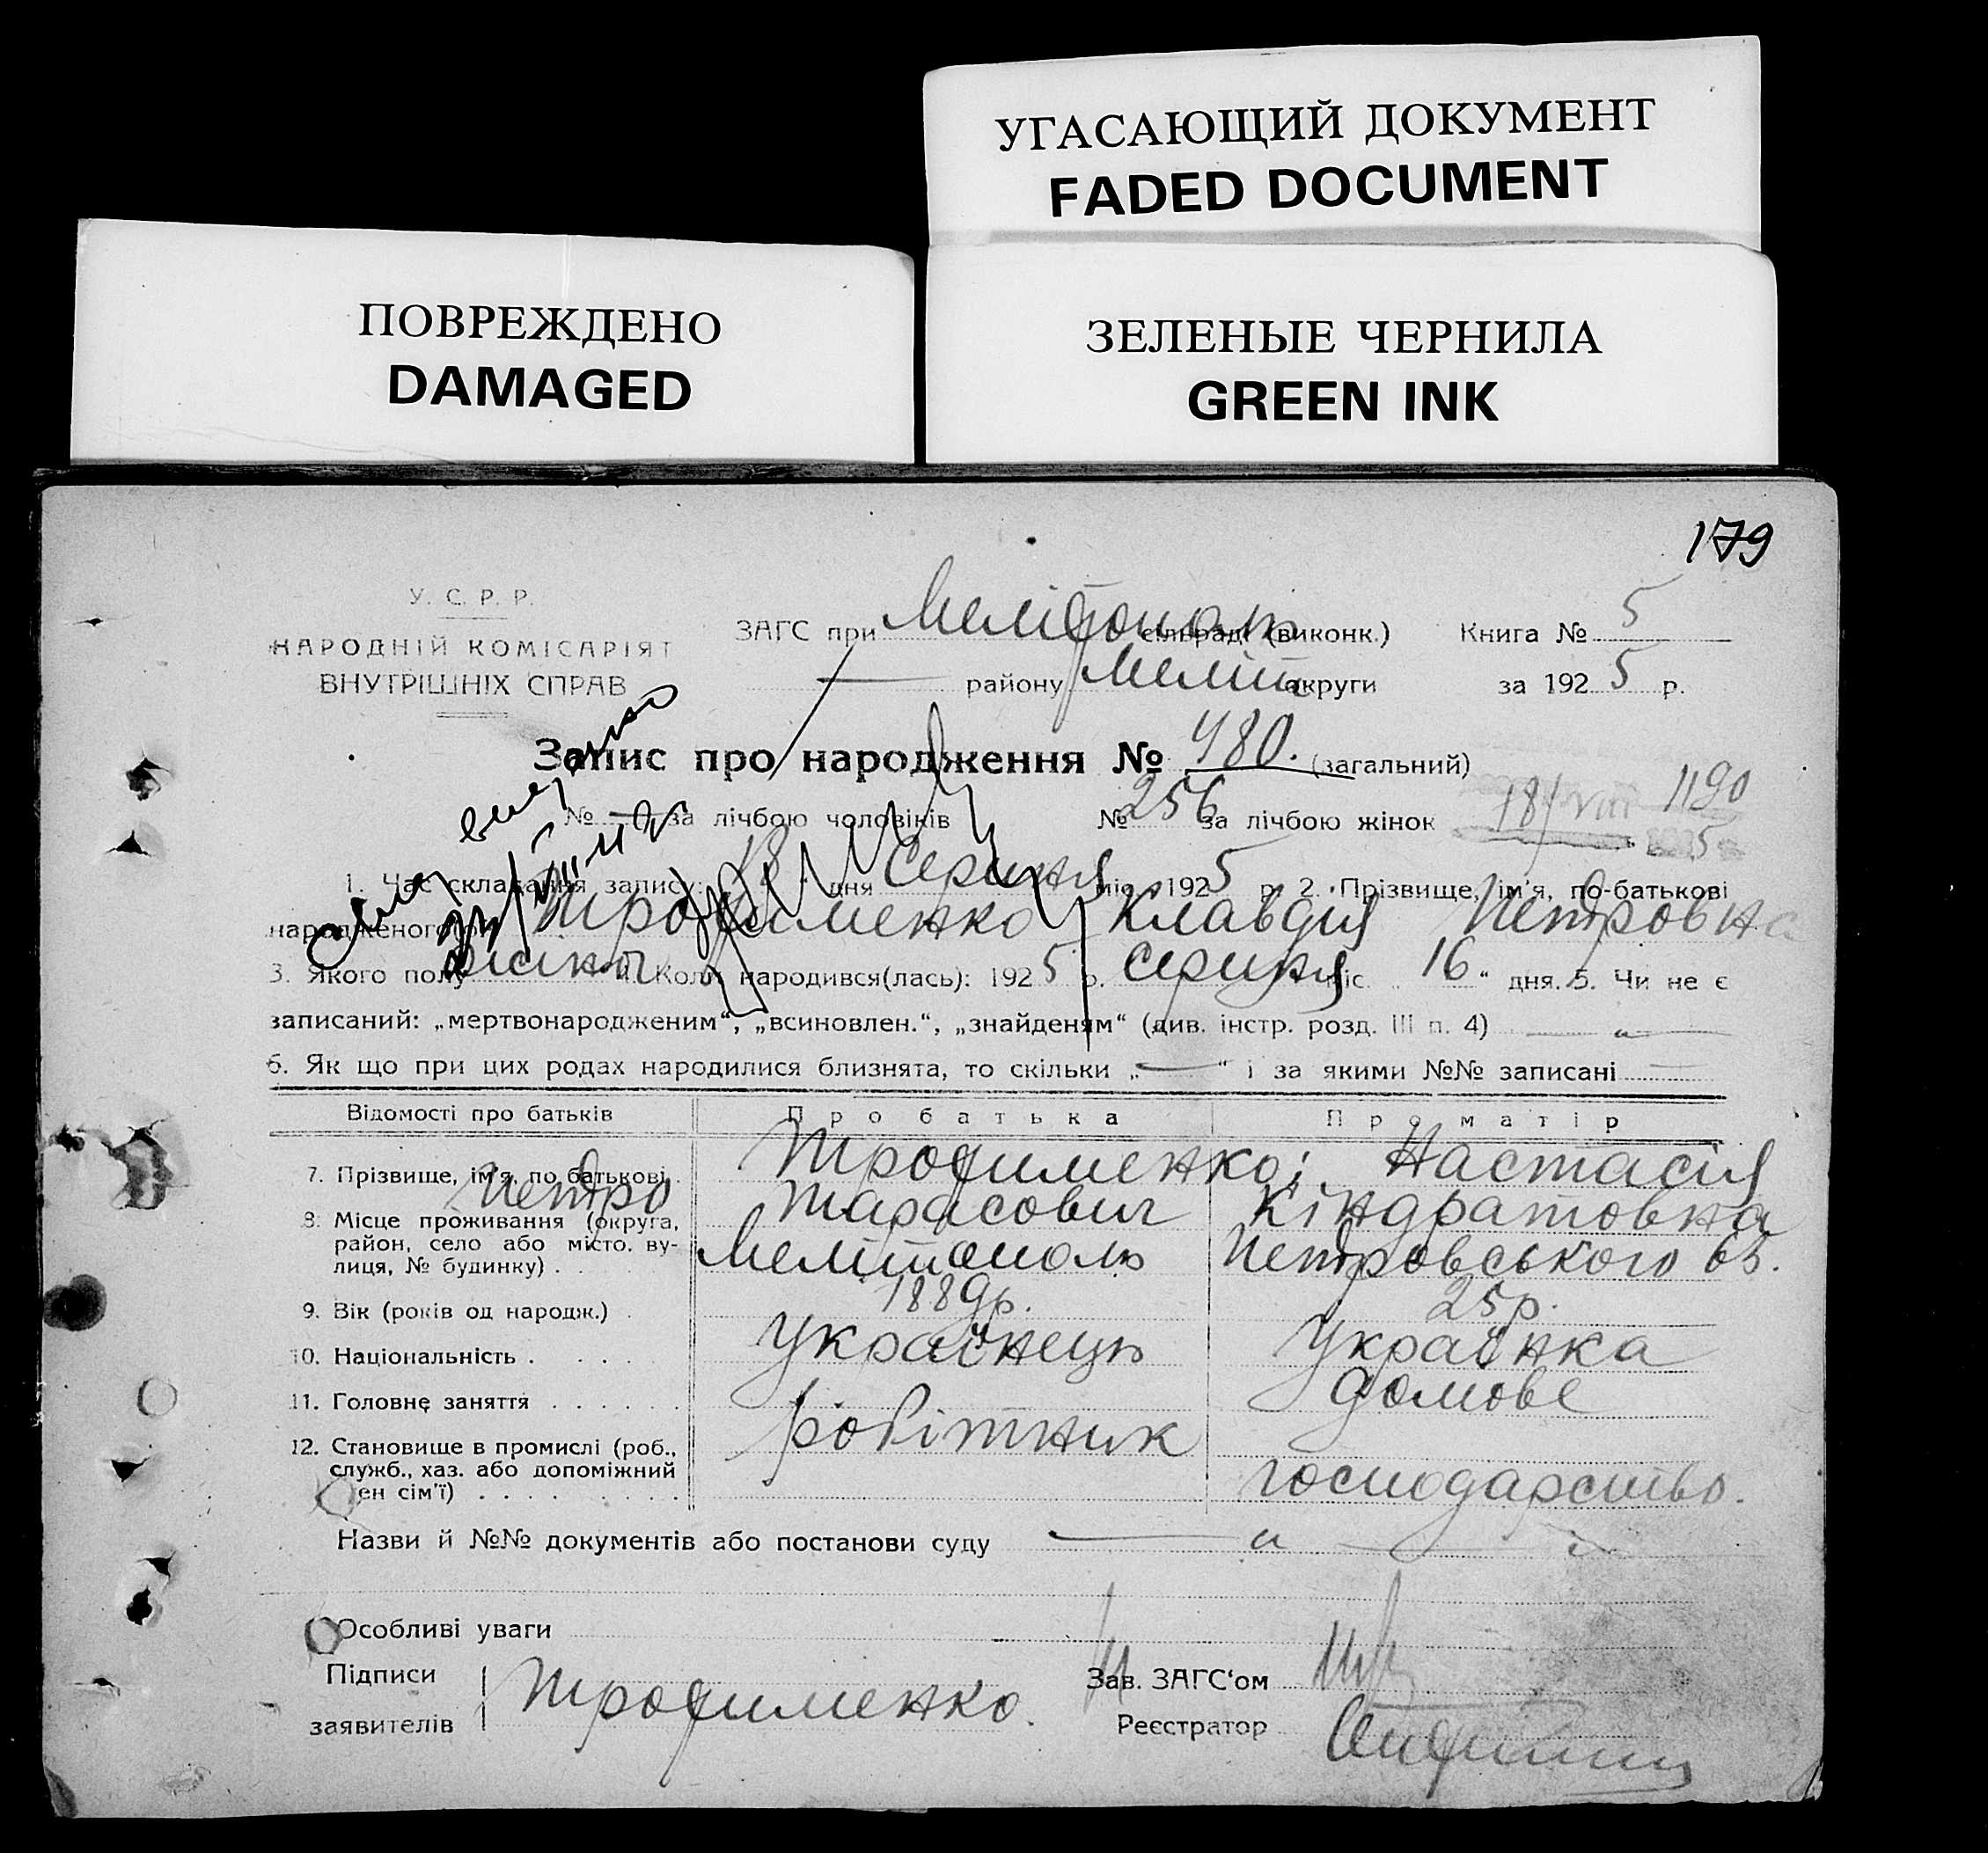 УГАСАЮЩИЙ ДОКУМЕНТ
FADED DOCUMENT
ПОВРЕЖДЕНО
DAMAGED
ЗЕЛЕНЫЕ ЧЕРНИЛА
GREEN INK
179
У. С. Р. Р.
НАРОДНІЙ КОМІСАРІЯТ
ВНУТРІШНІХ СПРАВ
ЗАГС при Мелітополь сільраді (виконк.) Книга № 5
району Меліт округи за 1925 р.
Запис про народження № 480. (загальний)
№ за лічбою чоловіків № 256 за лічбою жінок 18/VIII 1190
1. Час складання запису: 18 дня Серпня міс. 1925 р. 2. Прізвище, ім'я, по-батькові
народженого Трофименко Клавдія Петровна
3. Якого полу жіноч 4. Коли народився(лась): 1925 р. Серпня міс. 16 " дня. 5. Чи не є
записаний: „мертвонародженим“, „всиновлен.“, „знайденям“ (див. інстр. розд. III п. 4)
6. Як що при цих родах народилися близнята, то скільки „ — “ і за якими №№ записані
Відомості про батьків Про батька Про матір
7. Прізвище, ім'я, по батькові Трофименко; Настасія
Петро Тарасович Кіндратовна
8. Місце проживання (округа, район, село або місто, вулиця, № будинку) . . Мелітополь Петровського 65.
9. Вік (років од народж.) . 1889р. 25р.
10. Національність . . . . Українець Українка
11. Головне заняття . . . . . . домове
12. Становище в промислі (роб., робітник
служб., хаз. або допоміжний
ен сім'ї) . . . . . . . . . господарство.
Назви й №№ документів або постанови суду
Особливі уваги
Підписи
заявителів Трофименко.
Зав. ЗАГС‘ом
Реєстратор